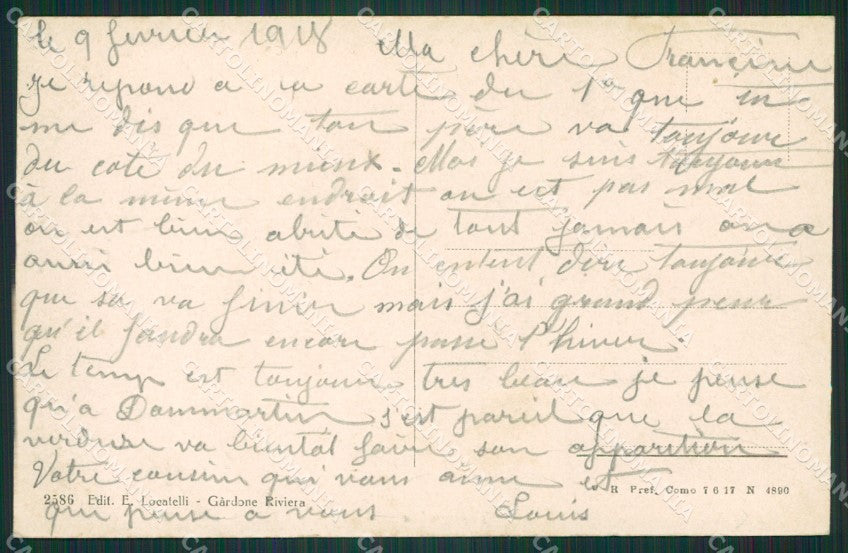 le 9 fevrier 1918 Ma chère Francine
je repond a ta carte du 1er que tu
me dis que ton père va toujour
du coté du mieux. Moi je suis toujour
à la même endroit on est pas mal
on est bien abrité de tout jamais on a
aussi bien été. On entent dire toujour
que sa va finir mais j'ai grand peur
qu'il faudra encore passe l'hiver.
Le temp est toujour tres beau je pense
qu'a Dammartin s'est pareil que la
verdure va bientot faire son apparition
Votre cousin qui vous aime et
2586 Edit. E. Locatelli - Gardone Riviera
R Pref. Como 7 6 17 N 4890
qui pense a vous. Louis
CARTOLINOMANIA